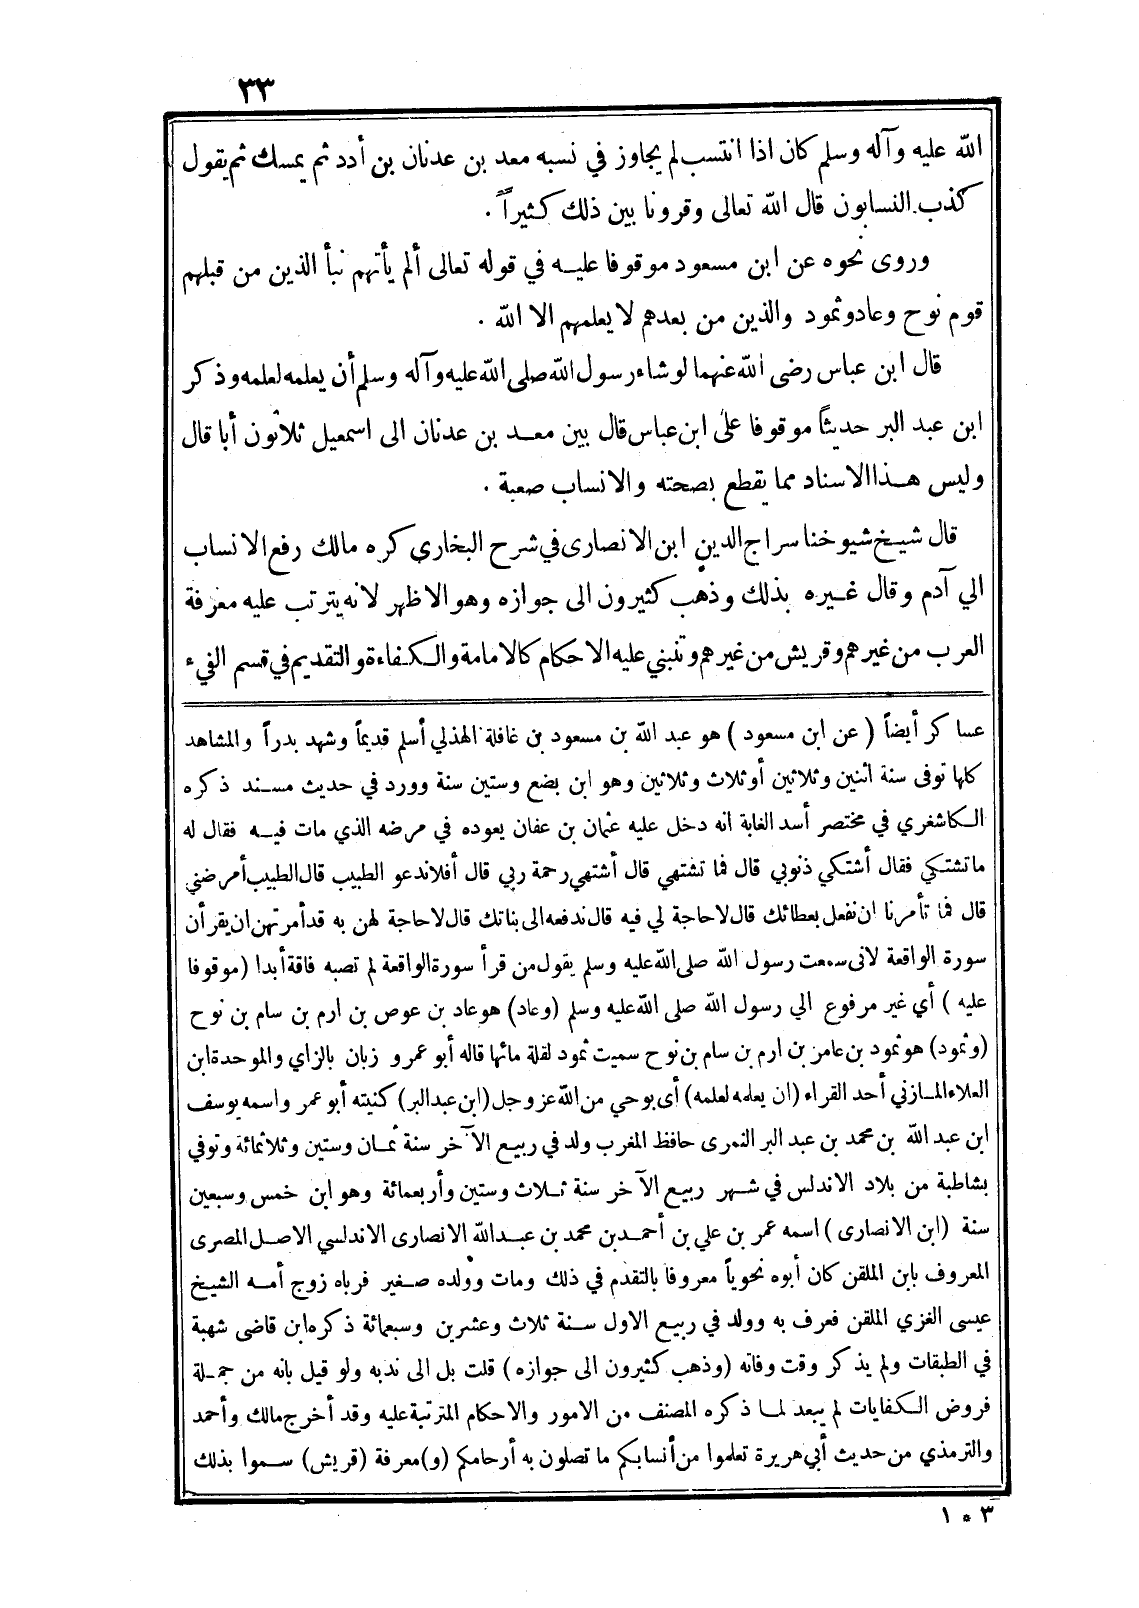 ٣٣
الله عليه وآله وسلم كان اذا انتسب لم يجاوز في نسبه معد بن عدنان بن أدد ثم يمسك ثم يقول
كذب النسابون قال الله تعالى وقرونا بين ذلك كثيراً .
وروى نحوه عن ابن مسعود موقوفا عليه في قوله تعالى ألم يأتهم نبأ الذين من قبلهم
قوم نوح وعاد وثمود والذين من بعدهم لا يعلمهم الا الله .
قال ابن عباس رضى الله عنهما لو شاء رسول الله صلى الله عليه وآله وسلم أن يعلمه لعلمه وذكر
ابن عبد البر حديثاً موقوفا على ابن عباس قال بين معد بن عدنان الى اسمعيل ثلاثون أبا قال
وليس هذا الاسناد مما يقطع بصحته والانساب صعبة .
قال شيخ شيوخنا سراج الدين ابن الانصارى في شرح البخارى كره مالك رفع الانساب
الي آدم وقال غيره بذلك وذهب كثيرون الى جوازه وهو الاظهر لانه يترتب عليه معرفة
العرب من غيرهم وقريش من غيرهم وتنبني عليه الاحكام كالامامة والكفاءة والتقديم في قسم الفيء
عساكر أيضاً ( عن ابن مسعود ) هو عبد الله بن مسعود بن غافلة الهذلي أسلم قديماً وشهد بدراً والمشاهد
كلها توفى سنة اثنين وثلاثين أو ثلاث وثلاثين وهو ابن بضع وستين سنة وورد في حديث مسند ذكره
الكاشغري في مختصر أسد الغابة انه دخل عليه عثمان بن عفان يعوده في مرضه الذي مات فيه فقال له
ما تشتكي فقال أشتكي ذنوبي قال فما تشتهي قال أشتهي رحمة ربي قال أفلا ندعو الطبيب قال الطبيب أمرضني
قال فما تأمرنا ان نفعل بعطائك قال لا حاجة لي فيه قال ندفعه الى بناتك قال لا حاجة لهن به قد أمرتهن ان يقرأن
سورة الواقعة لانى سمعت رسول الله صلى الله عليه وسلم يقول من قرأ سورة الواقعة لم تصبه فاقة أبدا (موقوفا
عليه ) أي غير مرفوع الي رسول الله صلى الله عليه وسلم (وعاد) هو عاد بن عوص بن ارم بن سام بن نوح
(وثمود) هو ثمود بن عامر بن ارم بن سام بن نوح سميت ثمود لقلة مائها قاله أبو عمرو زبان بالزاي والموحدة ابن
العلاء المازني أحد القراء (ان يعلمه لعلمه) أى بوحي من الله عز وجل (ابن عبد البر) كنيته أبو عمر واسمه يوسف
ابن عبد الله بن محمد بن عبد البر النمرى حافظ المغرب ولد في ربيع الآخر سنة ثمان وستين وثلاثمائة وتوفي
بشاطبة من بلاد الاندلس في شهر ربيع الآخر سنة ثلاث وستين وأربعمائة وهو ابن خمس وسبعين
سنة (ابن الانصارى ) اسمه عمر بن علي بن أحمد بن محمد بن عبد الله الانصارى الاندلسي الاصل المصرى
المعروف بابن الملقن كان أبوه نحوياً معروفا بالتقدم في ذلك ومات وولده صغير فرباه زوج أمه الشيخ
عيسى الغزي الملقن فعرف به وولد في ربيع الاول سنة ثلاث وعشرين وسبعمائة ذكره ابن قاضى شهبة
في الطبقات ولم يذكر وقت وفاته (وذهب كثيرون الى جوازه ) قلت بل الى ندبه ولو قيل بانه من جملة
فروض الكفايات لم يبعد لما ذكره المصنف من الامور والاحكام المترتبة عليه وقد أخرج مالك وأحمد
والترمذي من حديث أبي هريرة تعلموا من أنسابكم ما تصلون به أرحامكم (و) معرفة (قريش) سموا بذلك
١٠٣